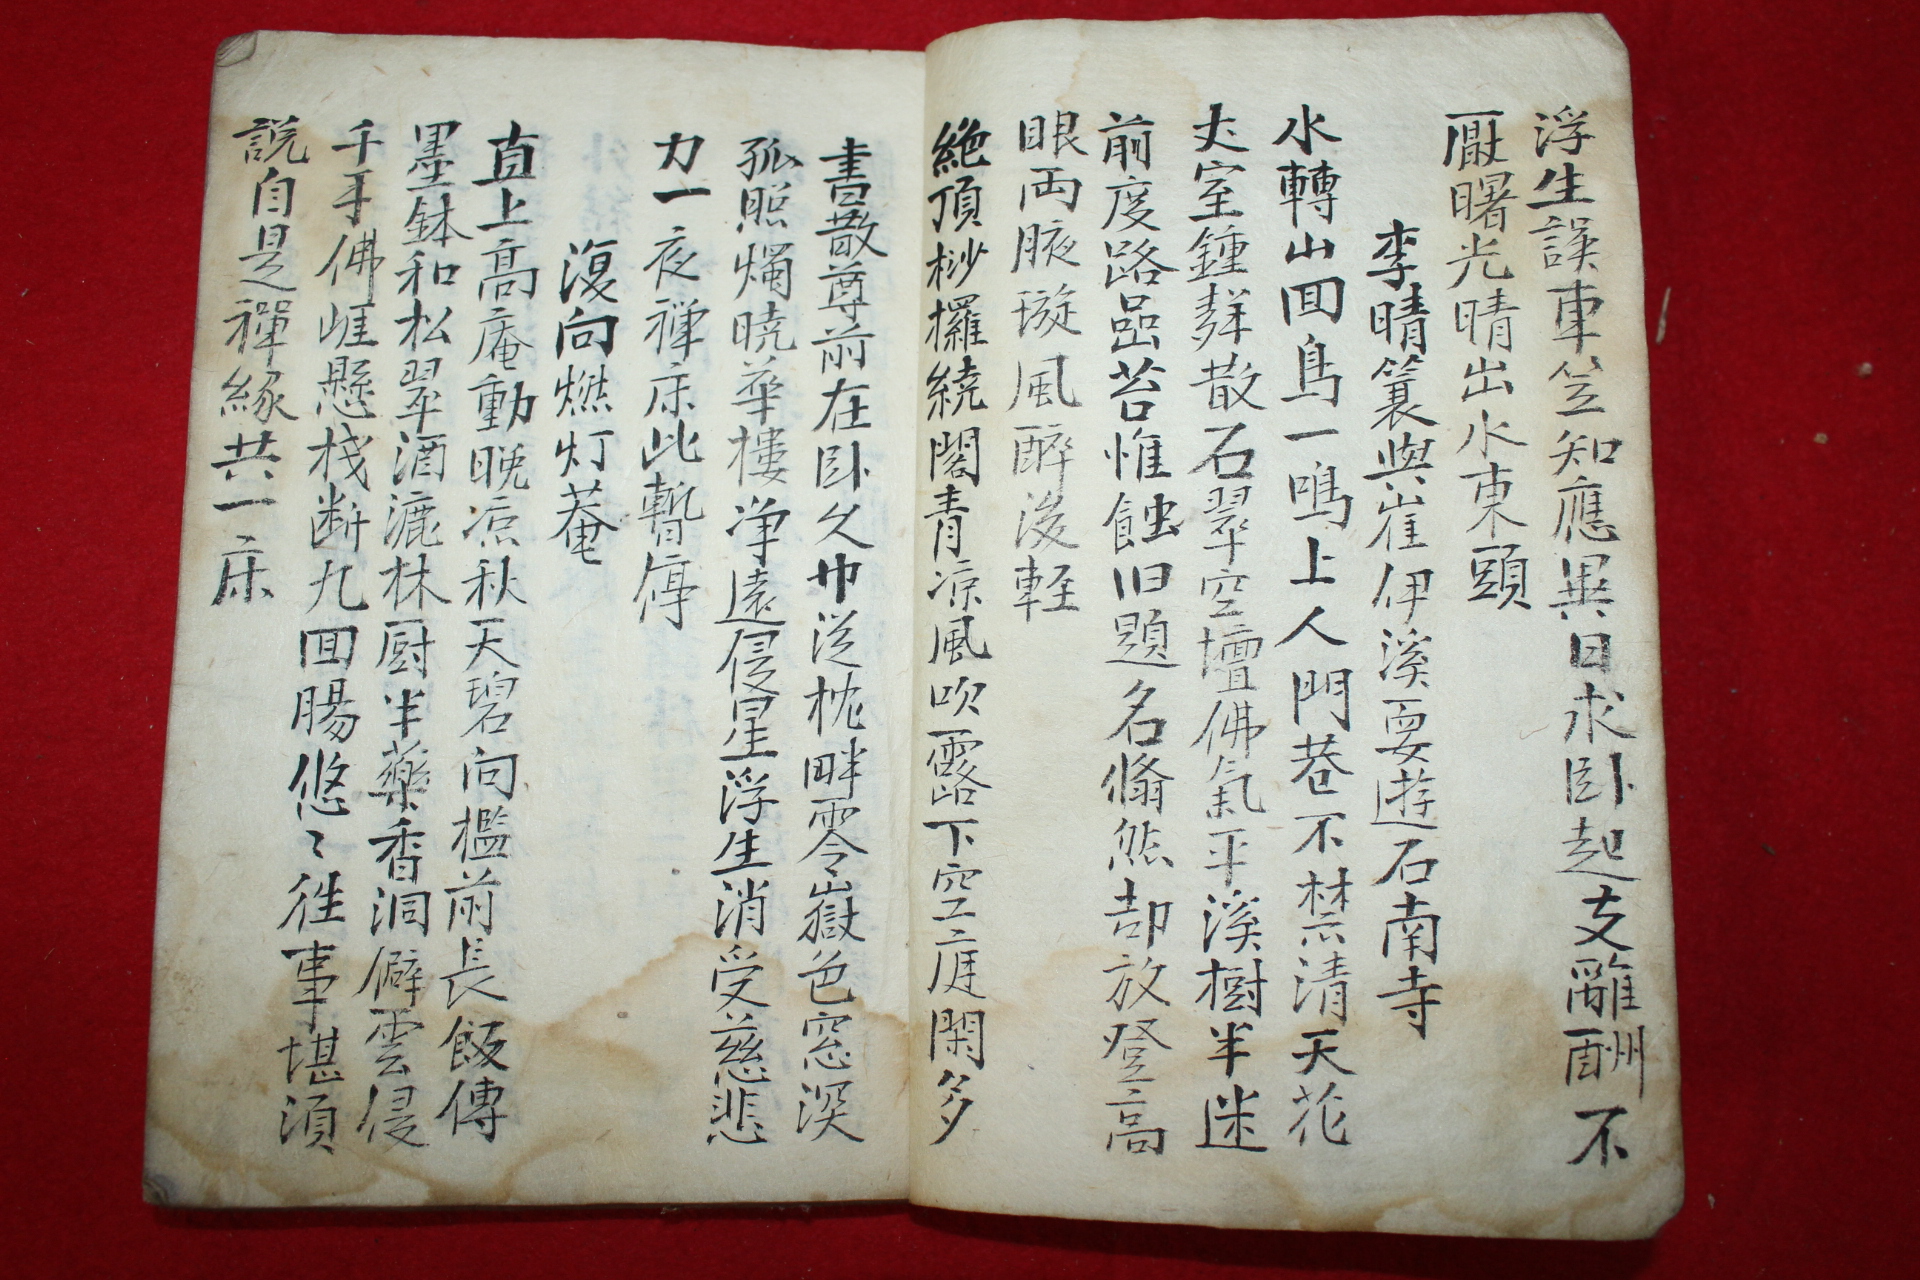 浮生誤車笠知應異日求卧起支離酬不
厭曙光晴出水東頭
李晴簑與崔伊溪耍遊石南寺
水轉山回鳥一鳴上人門巷不禁清天花
丈室鍾彂散石翠空壇佛氣平溪樹半迷
前度路嵒苔惟蝕旧題名翛然却放登高
眼両腋璇風醉後輕
絶頂桫欏繞閣青凉風吹露下空庭閑多
書散尊前在卧久巾従枕畔零嶽色窓深
孤照燭曉華樓净遠侵星浮生消受慈悲
力一夜禅床此暫停
復向燃灯菴
直上高庵動晩凉秋天碧向檻前長飯傳
墨鉢和松翠酒漉林厨半藥香洞僻雲侵
千手佛崕懸棧断九回腸悠〻徃事堪湏
説自是禪緣共一床